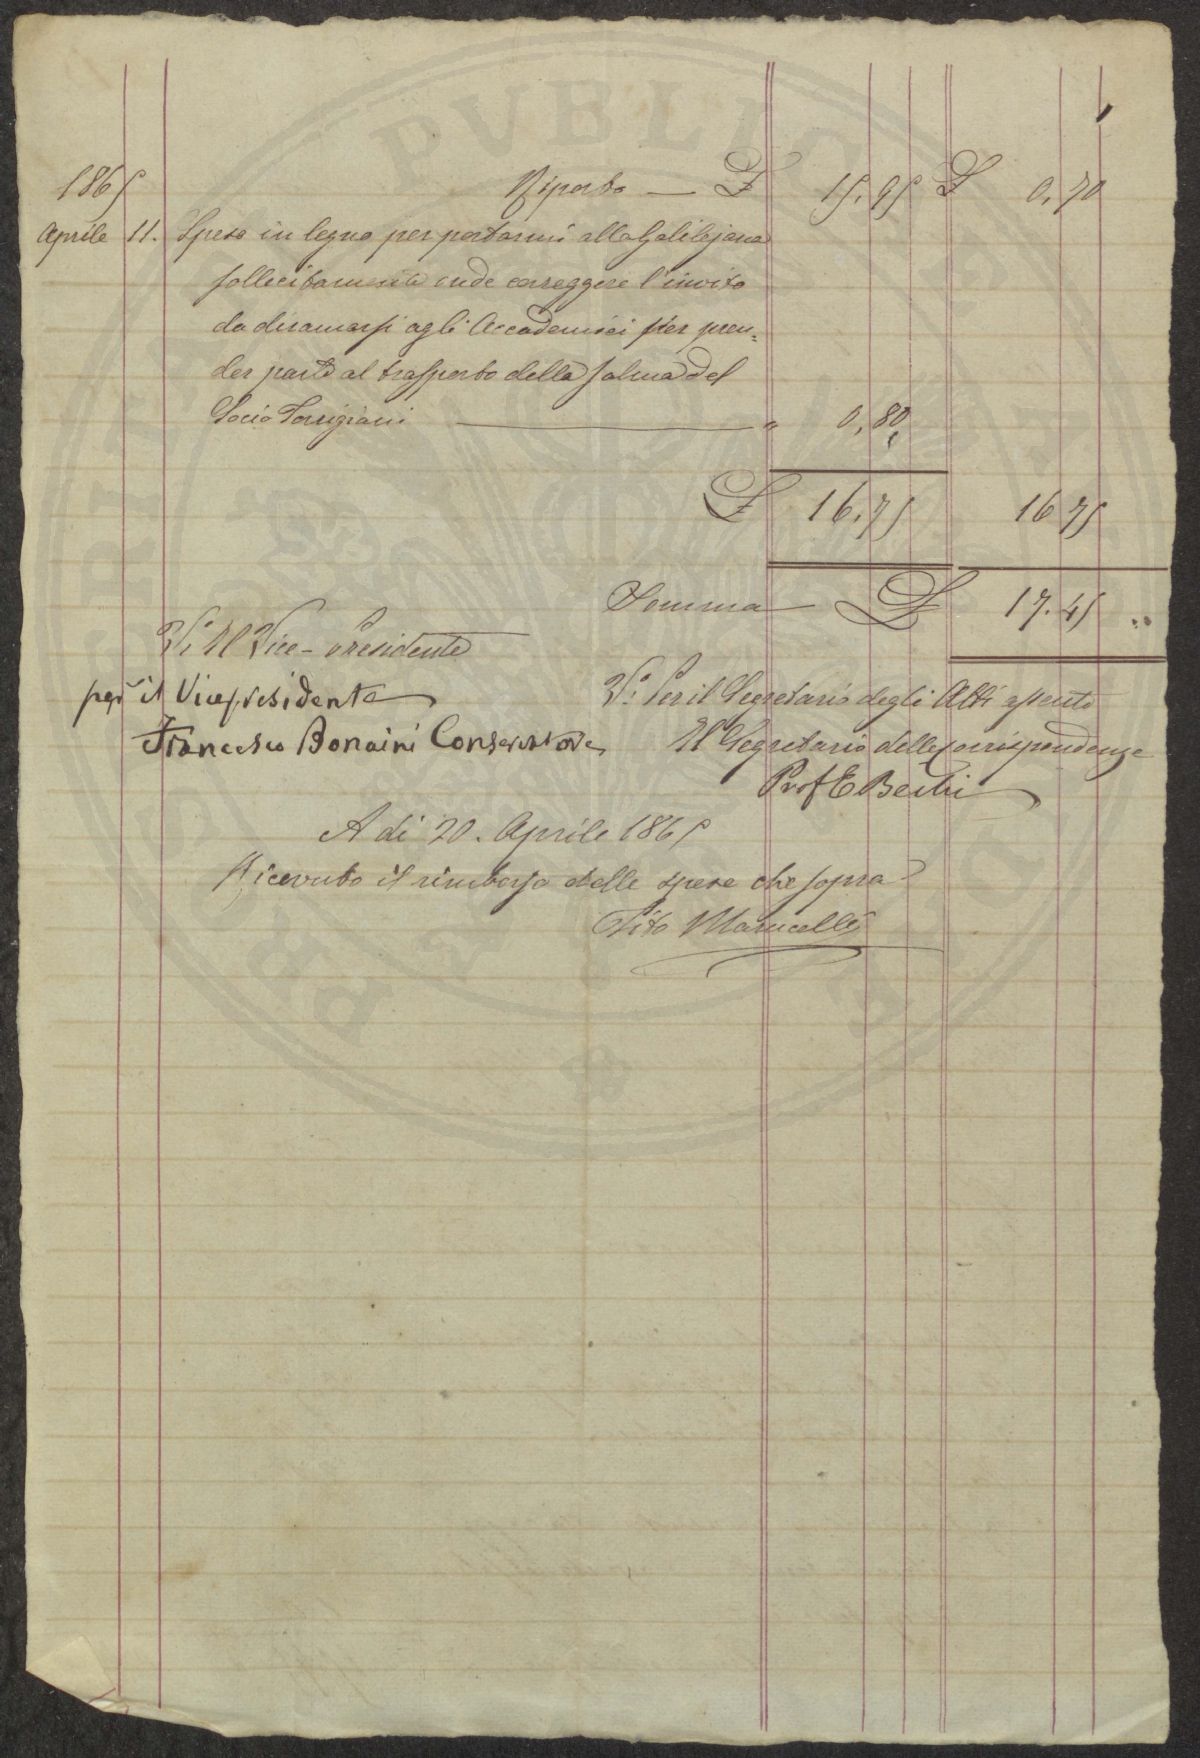 1865 Riporto — L 15,95 L 0,70
Aprile 11. Spese in legno per portarmi alla Galilejana
sollecitamente onde correggere l'invito
da diramarsi agli Accademici per pren=
der parte al trasporto della salma del
Socio Torrigiani — " 0,80
L 16,75 16 75
Somma — L 17.45
V. Il Vice-Presidente
per il Vicepresidente
Francesco Bonaini Conservatore
V. Per il Segretario degli Atti assente
Il Segretario delle Corrispondenze
Prof E Bechi
A dì 20. Aprile 1865
Ricevuto il rimborso delle spese che sopra
Tito